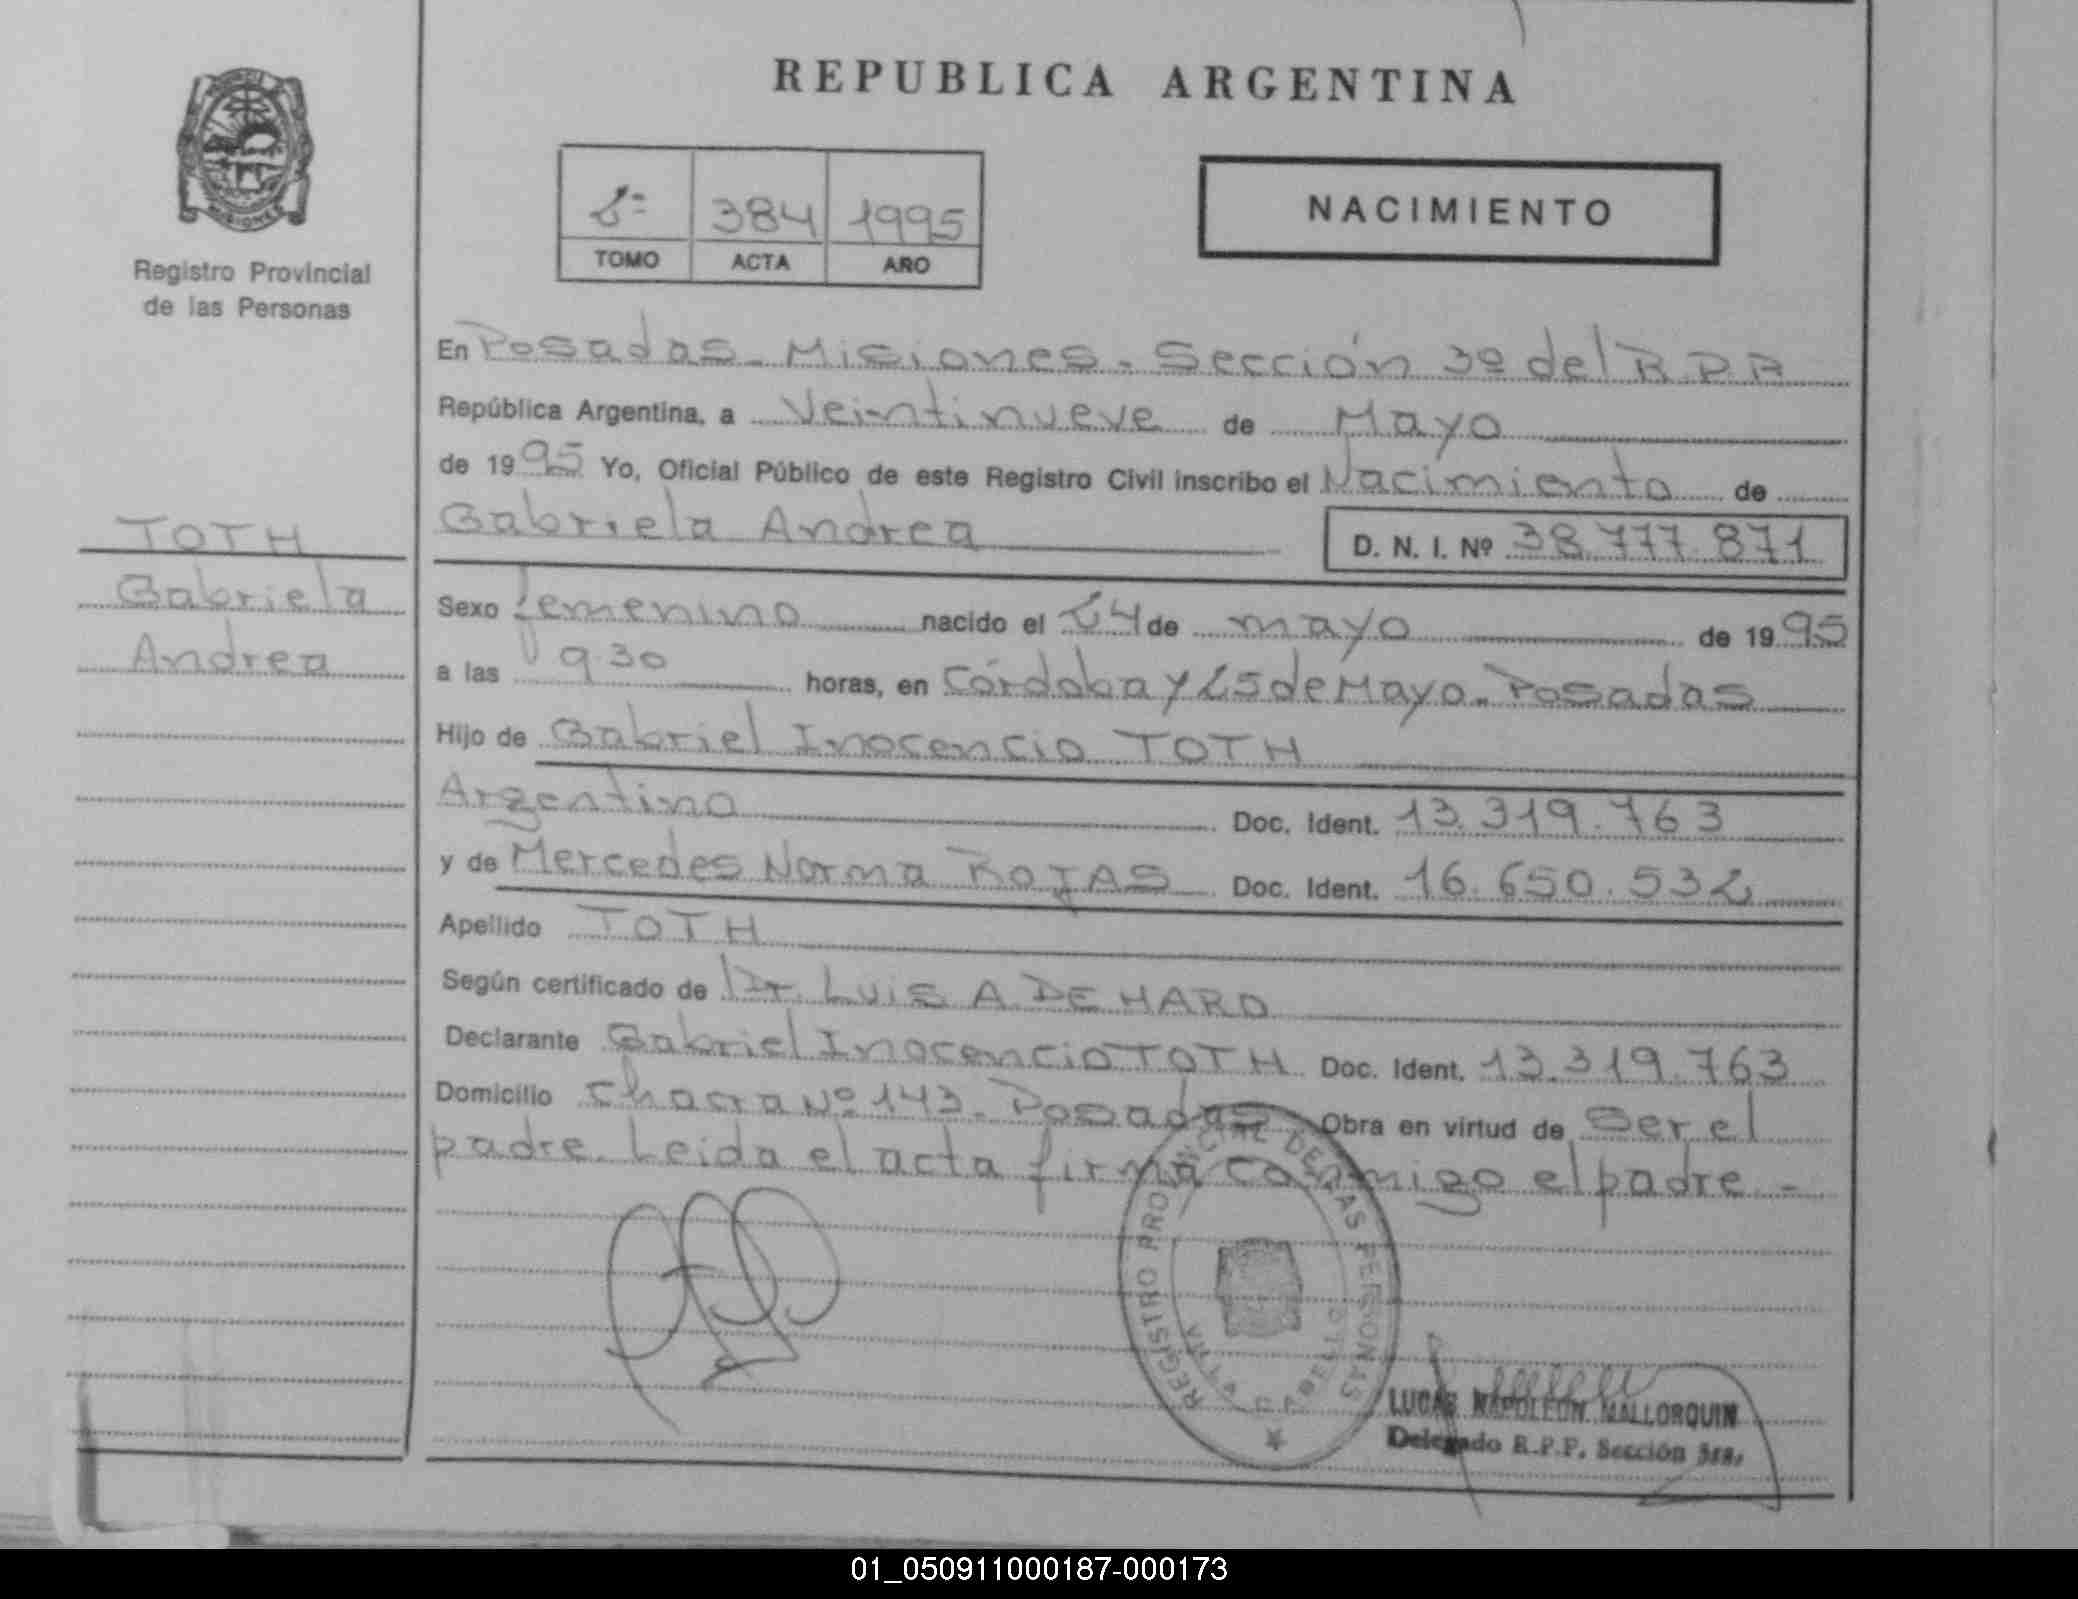 REPUBLICA ARGENTINA
MISIONES
Registro Provincial
de las Personas
2º 384 1995
TOMO ACTA AÑO
NACIMIENTO
En Posadas - Misiones - Sección 3º del R.P.P.
República Argentina, a Veintinueve de Mayo
de 1995 Yo, Oficial Público de este Registro Civil inscribo el Nacimiento de
Gabriela Andrea D. N. I. Nº 38.777.871
TOTH
Gabriela
Andrea
Sexo femenino nacido el 24 de mayo de 1995
a las 9.30 horas, en Córdoba y 25 de Mayo - Posadas
Hijo de Gabriel Inocencio TOTH
Argentino Doc. Ident. 13.319.763
y de Mercedes Norma ROJAS Doc. Ident. 16.650.532
Apellido TOTH
Según certificado de Dr. LUIS A DE HARO
Declarante Gabriel Inocencio TOTH Doc. Ident. 13.319.763
Domicilio Chacra Nº 143 - Posadas Obra en virtud de Ser el
padre. Leida el acta firma conmigo el padre -
REGISTRO PROVINCIAL DE LAS PERSONAS
LUCAS NAPOLEON MALLORQUIN
Delegado R.P.P. Sección 3ra.
01_050911000187-000173